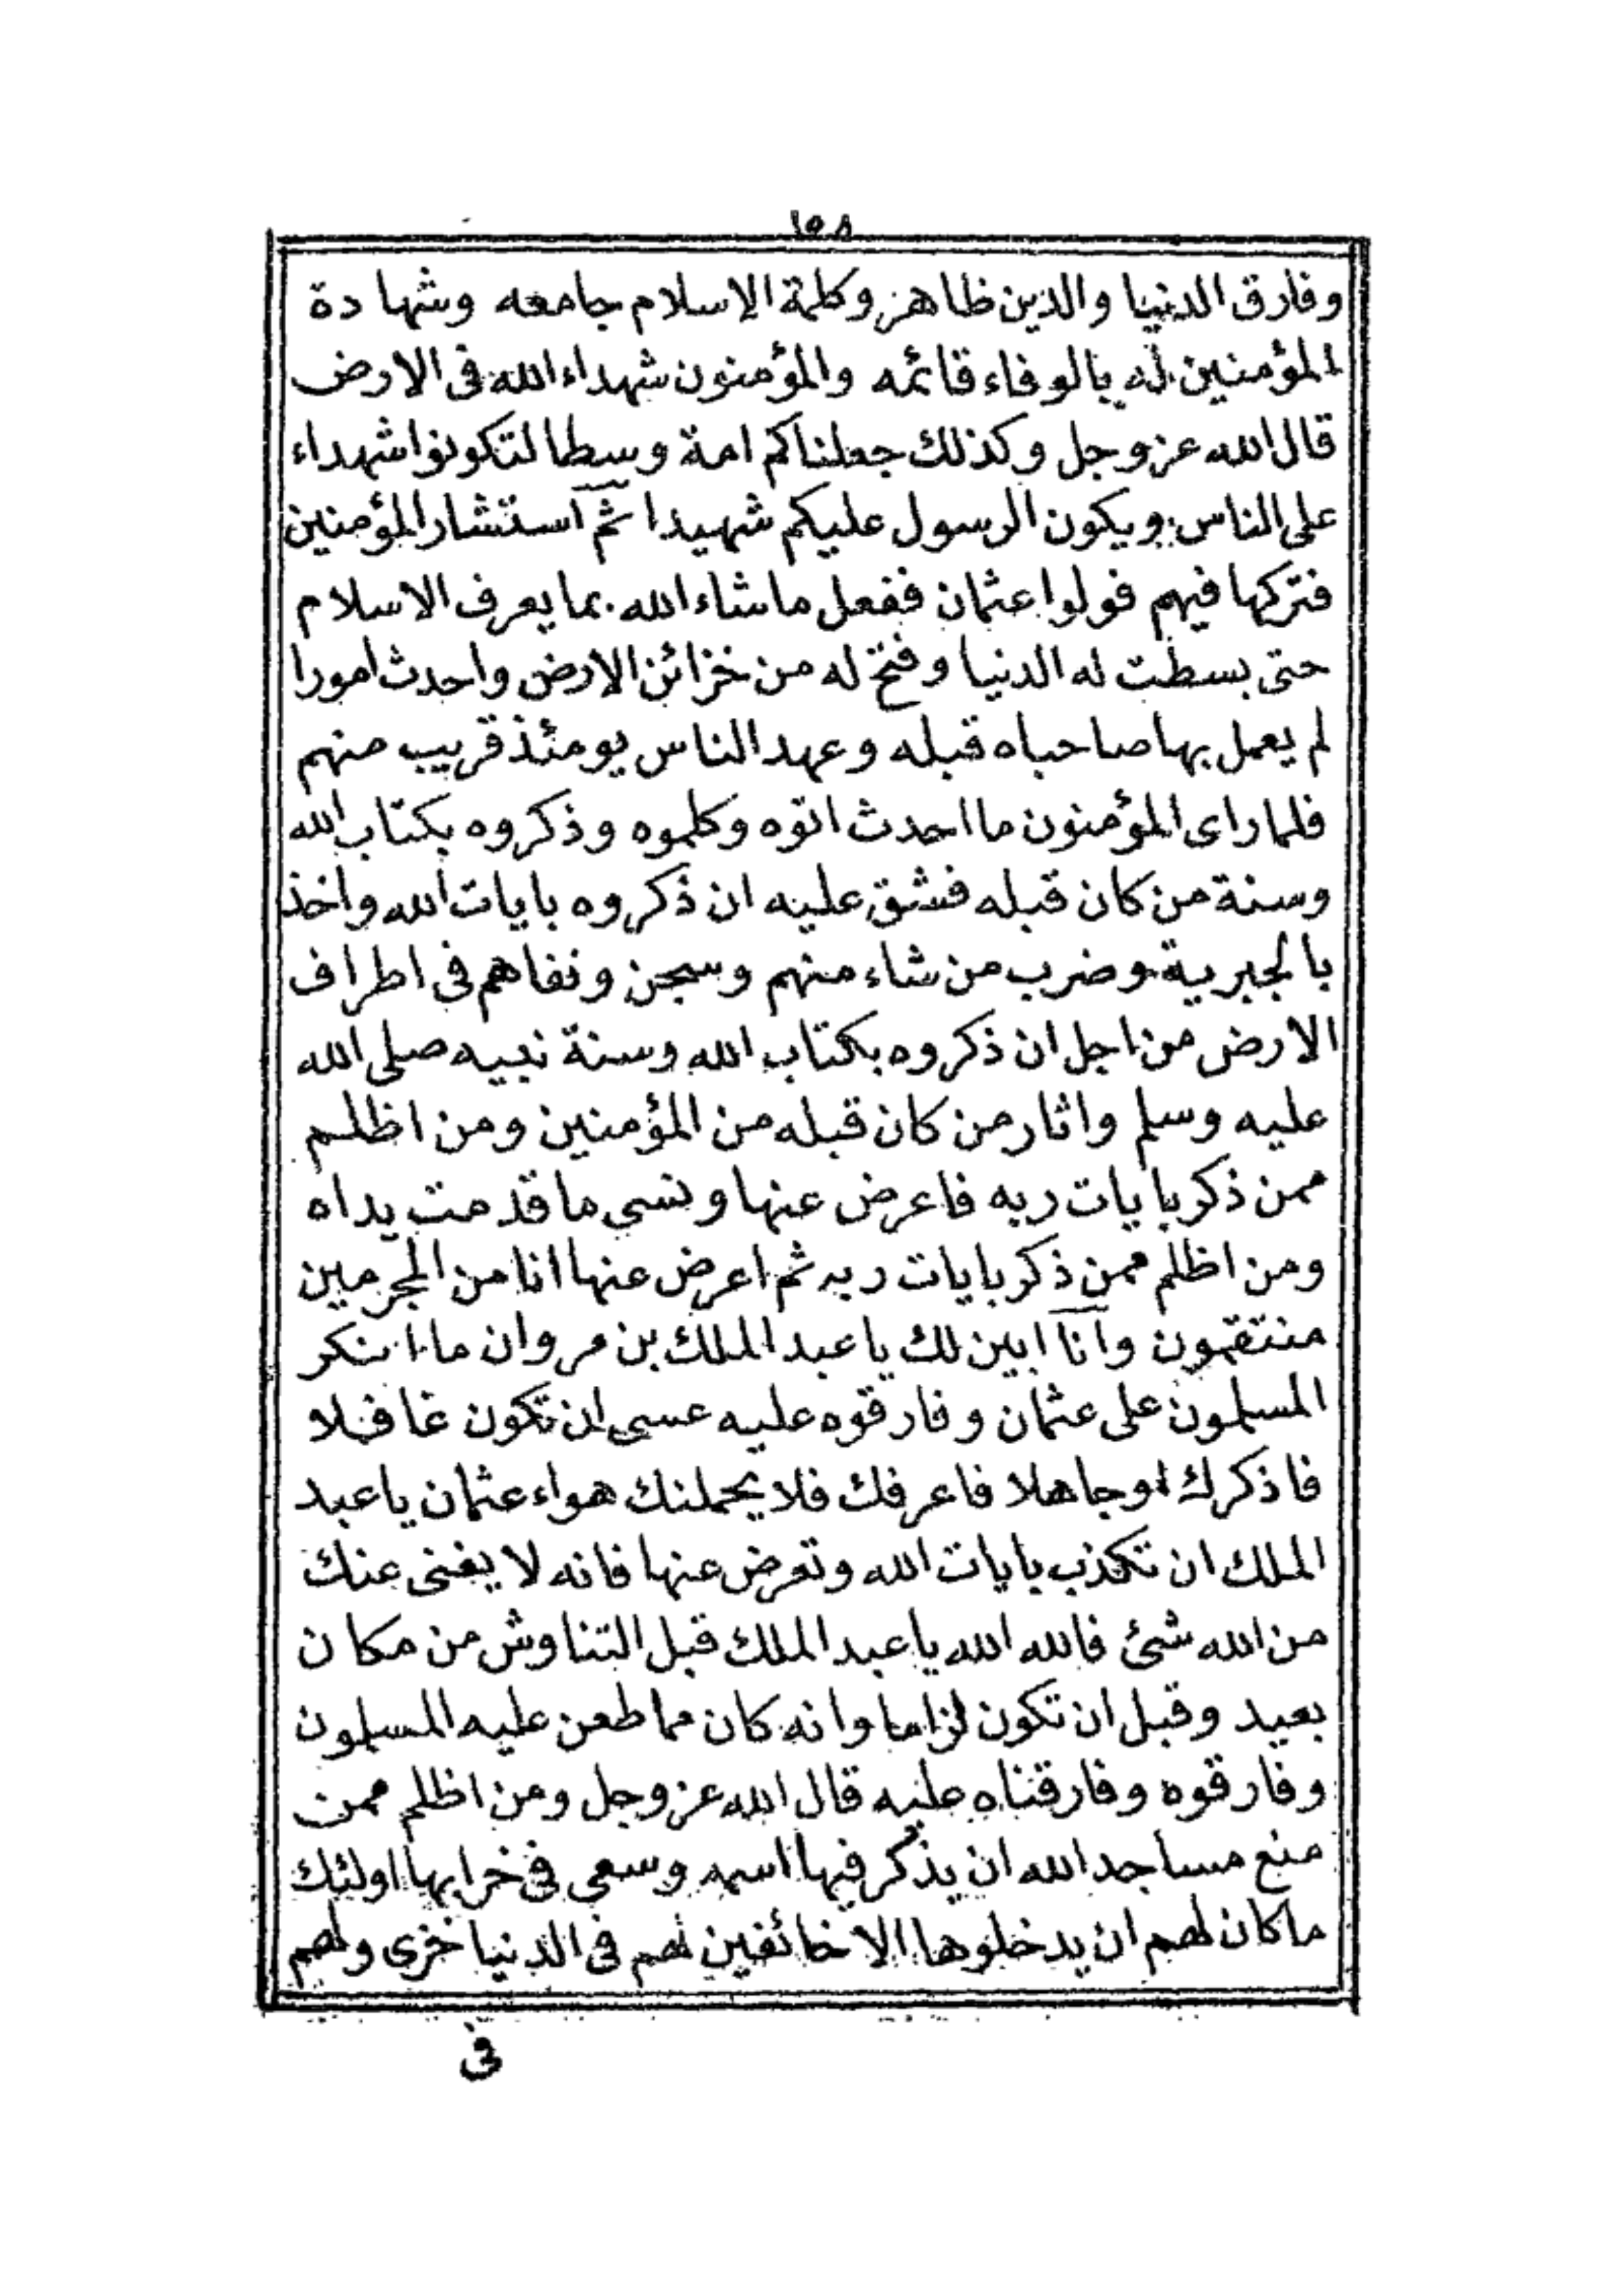 ١٥٨
وفارق الدنيا والدين ظاهر وكلمة الاسلام جامعه وشهادة
المؤمنين له بالوفاء قائمه والمؤمنون شهداء الله فى الارض
قال الله عز وجل وكذلك جعلناكم امة وسطا لتكونوا شهداء
على الناس ويكون الرسول عليكم شهيدا ثم آستشار المؤمنين
فتركها فيهم فولوا عثمان ففعل ما شاء الله بما يعرف الاسلام
حتى بسطت له الدنيا وفتح له من خزائن الارض واحدث امورا
لم يعمل بها صاحباه قبله وعهد الناس يومئذ قريب منهم
فلما راى المؤمنون ما احدث اتوه وكلموه وذكروه بكتاب الله
وسنة من كان قبله فشق عليه ان ذكروه بايات الله واخذ
بالجبرية وضرب من شاء منهم وسجن ونفاهم فى اطراف
الارض من اجل ان ذكروه بكتاب الله وسنة نبيه صلى الله
عليه وسلم واثار من كان قبله من المؤمنين ومن اظلم
ممن ذكر بايات ربه فاعرض عنها ونسى ما قدمت يداه
ومن اظلم ممن ذكر بايات ربه ثم اعرض عنها انا من المجرمين
منتقمون وآنا ابين لك يا عبد الملك بن مروان ما انكر
المسلمون على عثمان وفارقوه عليه عسى ان تكون غافلا
فاذكرك او جاهلا فاعرفك فلا يحملنك هواء عثمان يا عبد
الملك ان تكذب بايات الله وتعرض عنها فانه لا يغنى عنك
من الله شئ فالله الله يا عبد الملك قبل التناوش من مكان
بعيد وقبل ان تكون لزاما وانه كان مما طعن عليه المسلمون
وفارقوه وفارقناه عليه قال الله عز وجل ومن اظلم ممن
منع مساجد الله ان يذكر فيها اسمه وسعى فى خرابها اولئك
ما كان لهم ان يدخلوها الا خائفين لهم فى الدنيا خزى ولهم
فى